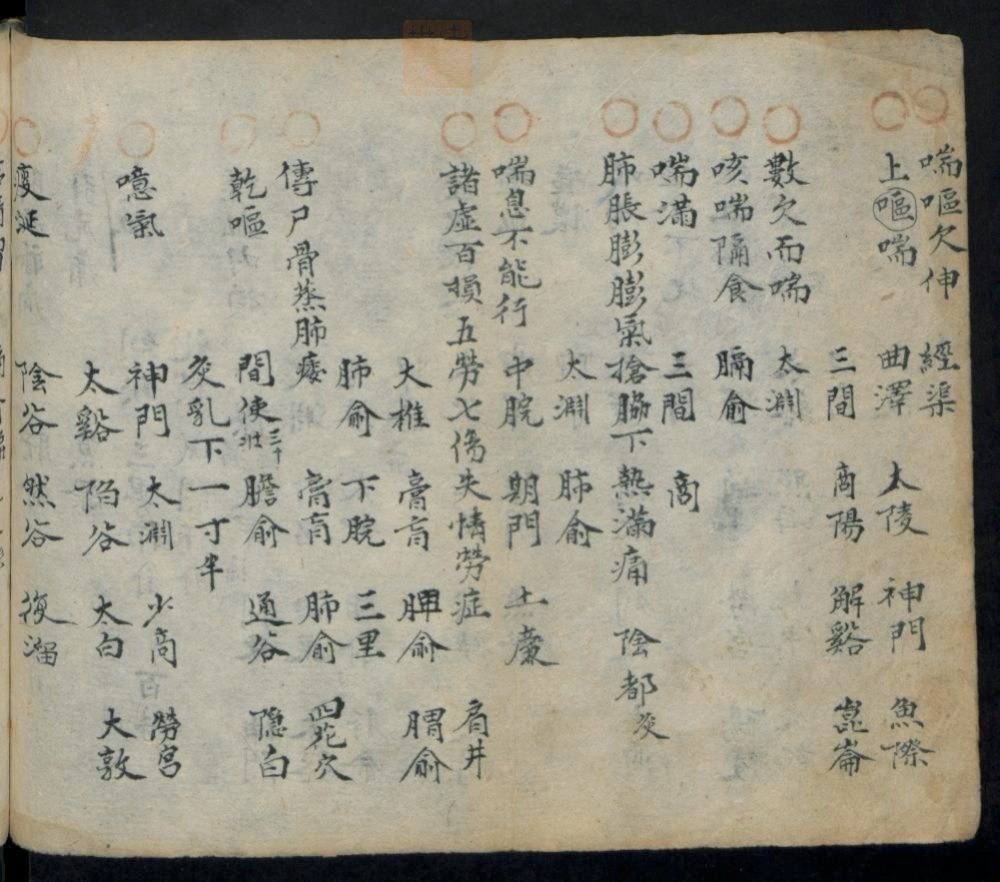 喘嘔欠伸 經渠
上嘔喘 曲澤 太陵 神門 魚際
三間 商陽 解谿 崑崙
數欠而喘 太淵
咳喘隔食 膈俞
喘滿 三間 商
肺脹膨膨氣搶脇下熱滿痛 陰都灸
太淵 肺俞
喘息不能行 中脘 期門 上廉
諸虛百損五勞七傷失情勞症 肩井
大椎 膏肓 脾俞 胃俞
肺俞 下脘 三里
傳尸骨蒸肺痿 膏肓 肺俞 四花穴
乾嘔 間使三十壯 膽俞 通谷 隱白
灸乳下一寸半
噫氣 神門 太淵 少商 勞宮
太谿 陷谷 太白 大敦
痰涎 陰谷 然谷 復溜